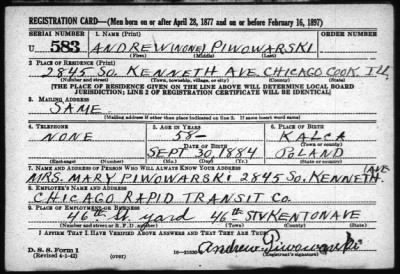 REGISTRATION CARD—(Men born on or after April 28, 1877 and on or before February 16, 1897)
SERIAL NUMBER 1. NAME (Print) ORDER NUMBER
U 583 ANDREW (NONE) PIWOWARSKI
(First) (Middle) (Last)
2. PLACE OF RESIDENCE (Print)
2845 SO. KENNETH AVE. CHICAGO COOK ILL.
(Number and street) (Town, township, village, or city) (County) (State)
[THE PLACE OF RESIDENCE GIVEN ON THE LINE ABOVE WILL DETERMINE LOCAL BOARD
JURISDICTION; LINE 2 OF REGISTRATION CERTIFICATE WILL BE IDENTICAL]
3. MAILING ADDRESS
SAME
[Mailing address if other than place indicated on line 2. If same insert word same]
4. TELEPHONE 5. AGE IN YEARS 6. PLACE OF BIRTH
NONE 58- KALCA
DATE OF BIRTH (Town or county)
SEPT 30 1884 POLAND
(Exchange) (Number) (Mo.) (Day) (Yr.) (State or country)
7. NAME AND ADDRESS OF PERSON WHO WILL ALWAYS KNOW YOUR ADDRESS (AVE
MRS. MARY PIWOWARSKI 2845 SO. KENNETH
8. EMPLOYER'S NAME AND ADDRESS
CHICAGO RAPID TRANSIT CO.
9. PLACE OF EMPLOYMENT OR BUSINESS
46th St. yard 46th ST KENTON AVE
(Number and street or R. F. D. number) (Town) (County) (State)
I AFFIRM THAT I HAVE VERIFIED ABOVE ANSWERS AND THAT THEY ARE TRUE.
D. S. S. Form 1 Andrew Piwowarski
(Revised 4-1-42) (over)